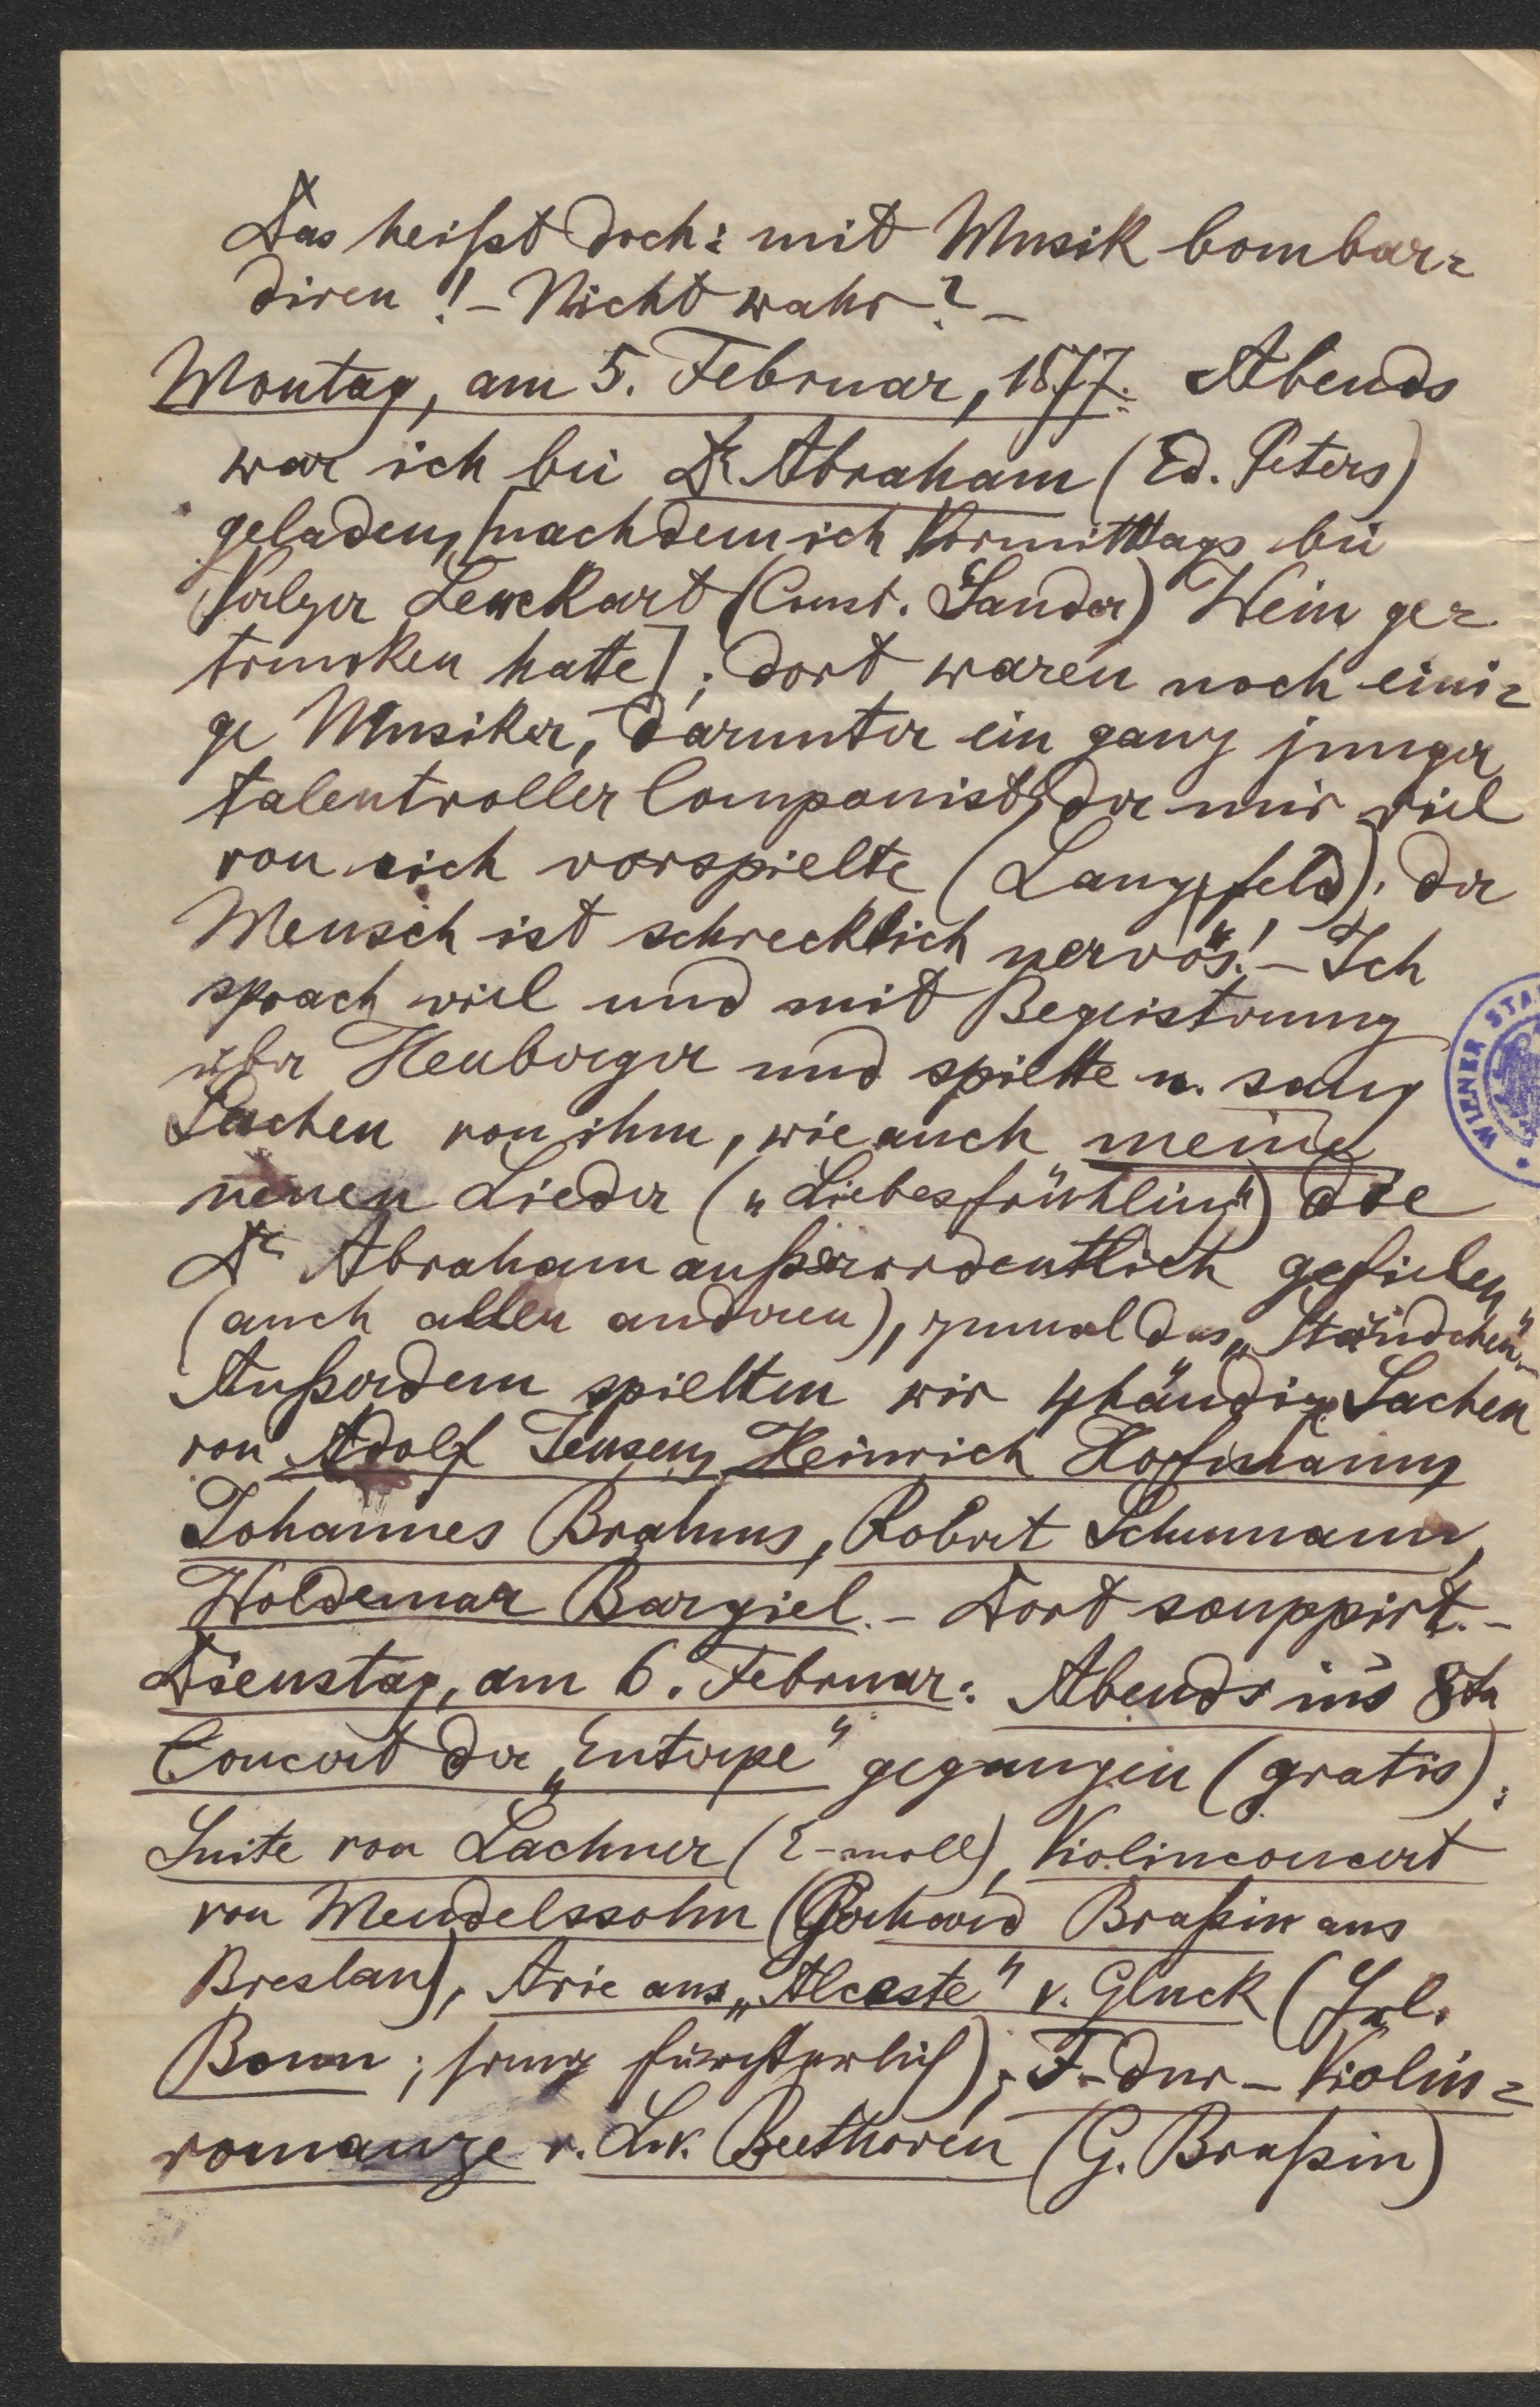 Das heißt doch: mit Musik bombar=
diren! – Nicht wahr? –
Montag, am 5. Februar, 1877. Abends
war ich bei Dr Abraham (Ed. Peters)
geladen, [nachdem ich Vormittags bei
Verleger Leuckart (Const. Sander) Wein ge=
trunken hatte]; dort waren noch eini=
ge Musiker, darunter ein ganz junger
talentvoller Componist, der mir viel
von sich vorspielte (Langefeld); der
Mensch ist schrecklich nervös! – Ich
sprach viel und mit Begeisterung
über Heuberger und spielte u. sang
Sachen von ihm, wie auch meine
neuen Lieder („Liebesfrühling") die
Dr Abraham außerordentlich gefielen
(auch allen anderen), zumal das „Ständchen".–
Außerdem spielten wir 4händige Sachen
von Adolf Jensen, Heinrich Hofmann,
Johannes Brahms, Robert Schumann,
Woldemar Bargiel. – Dort souppirt. –
Dienstag, am 6. Februar: Abends in's 8te
Concert der „Euterpe" gegangen (gratis):
Suite von Lachner (E-moll), Violinconcert
von Mendelssohn (Gerhard Braßin aus
Breslau), Arie aus „Alceste" v. Gluck (Frl.
Bonn; sang fürchterlich); F-dur-Violin=
romanze v. L. v. Beethoven (G. Braßin)
WIENER STA